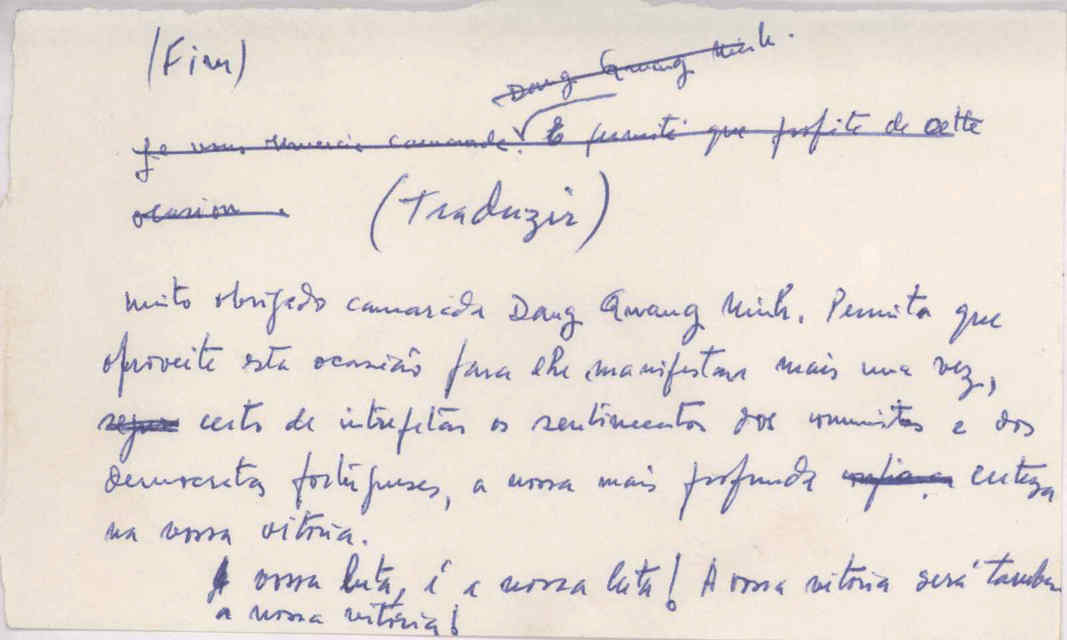 (Fim)
Dang Quang Minh.
Je vous remercie camarade. E permiti que profite de cette
ocasion.
(Traduzir)
Muito obrigado camarada Dang Quang Minh. Permita que
aproveite esta ocasião para lhe manifestar mais uma vez,
certo de intrepetar os sentimentos dos comunistas e dos
democratas portugueses, a nossa mais profunda confiança certeza
na vossa vitória.
A vossa luta, é a nossa luta! A vossa vitória será tambem
a nossa vitória!